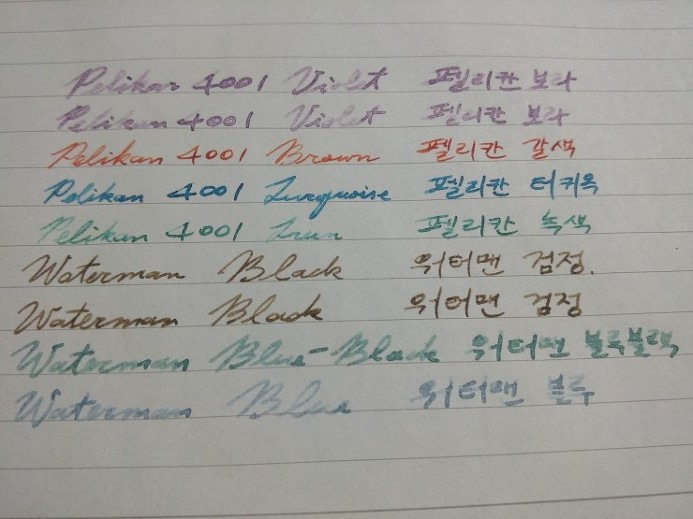 Pelikan 4001 Violet 펠리칸 보라
Pelikan 4001 Violet 펠리칸 보라
Pelikan 4001 Brown 펠리칸 갈색
Pelikan 4001 Turquoise 펠리칸 터키옥
Pelikan 4001 펠리칸 녹색
Waterman Black 워터맨 검정.
Waterman Black 워터맨 검정
Waterman Blue-Black 워터맨 블루블랙
Waterman Blue 워터맨 블루